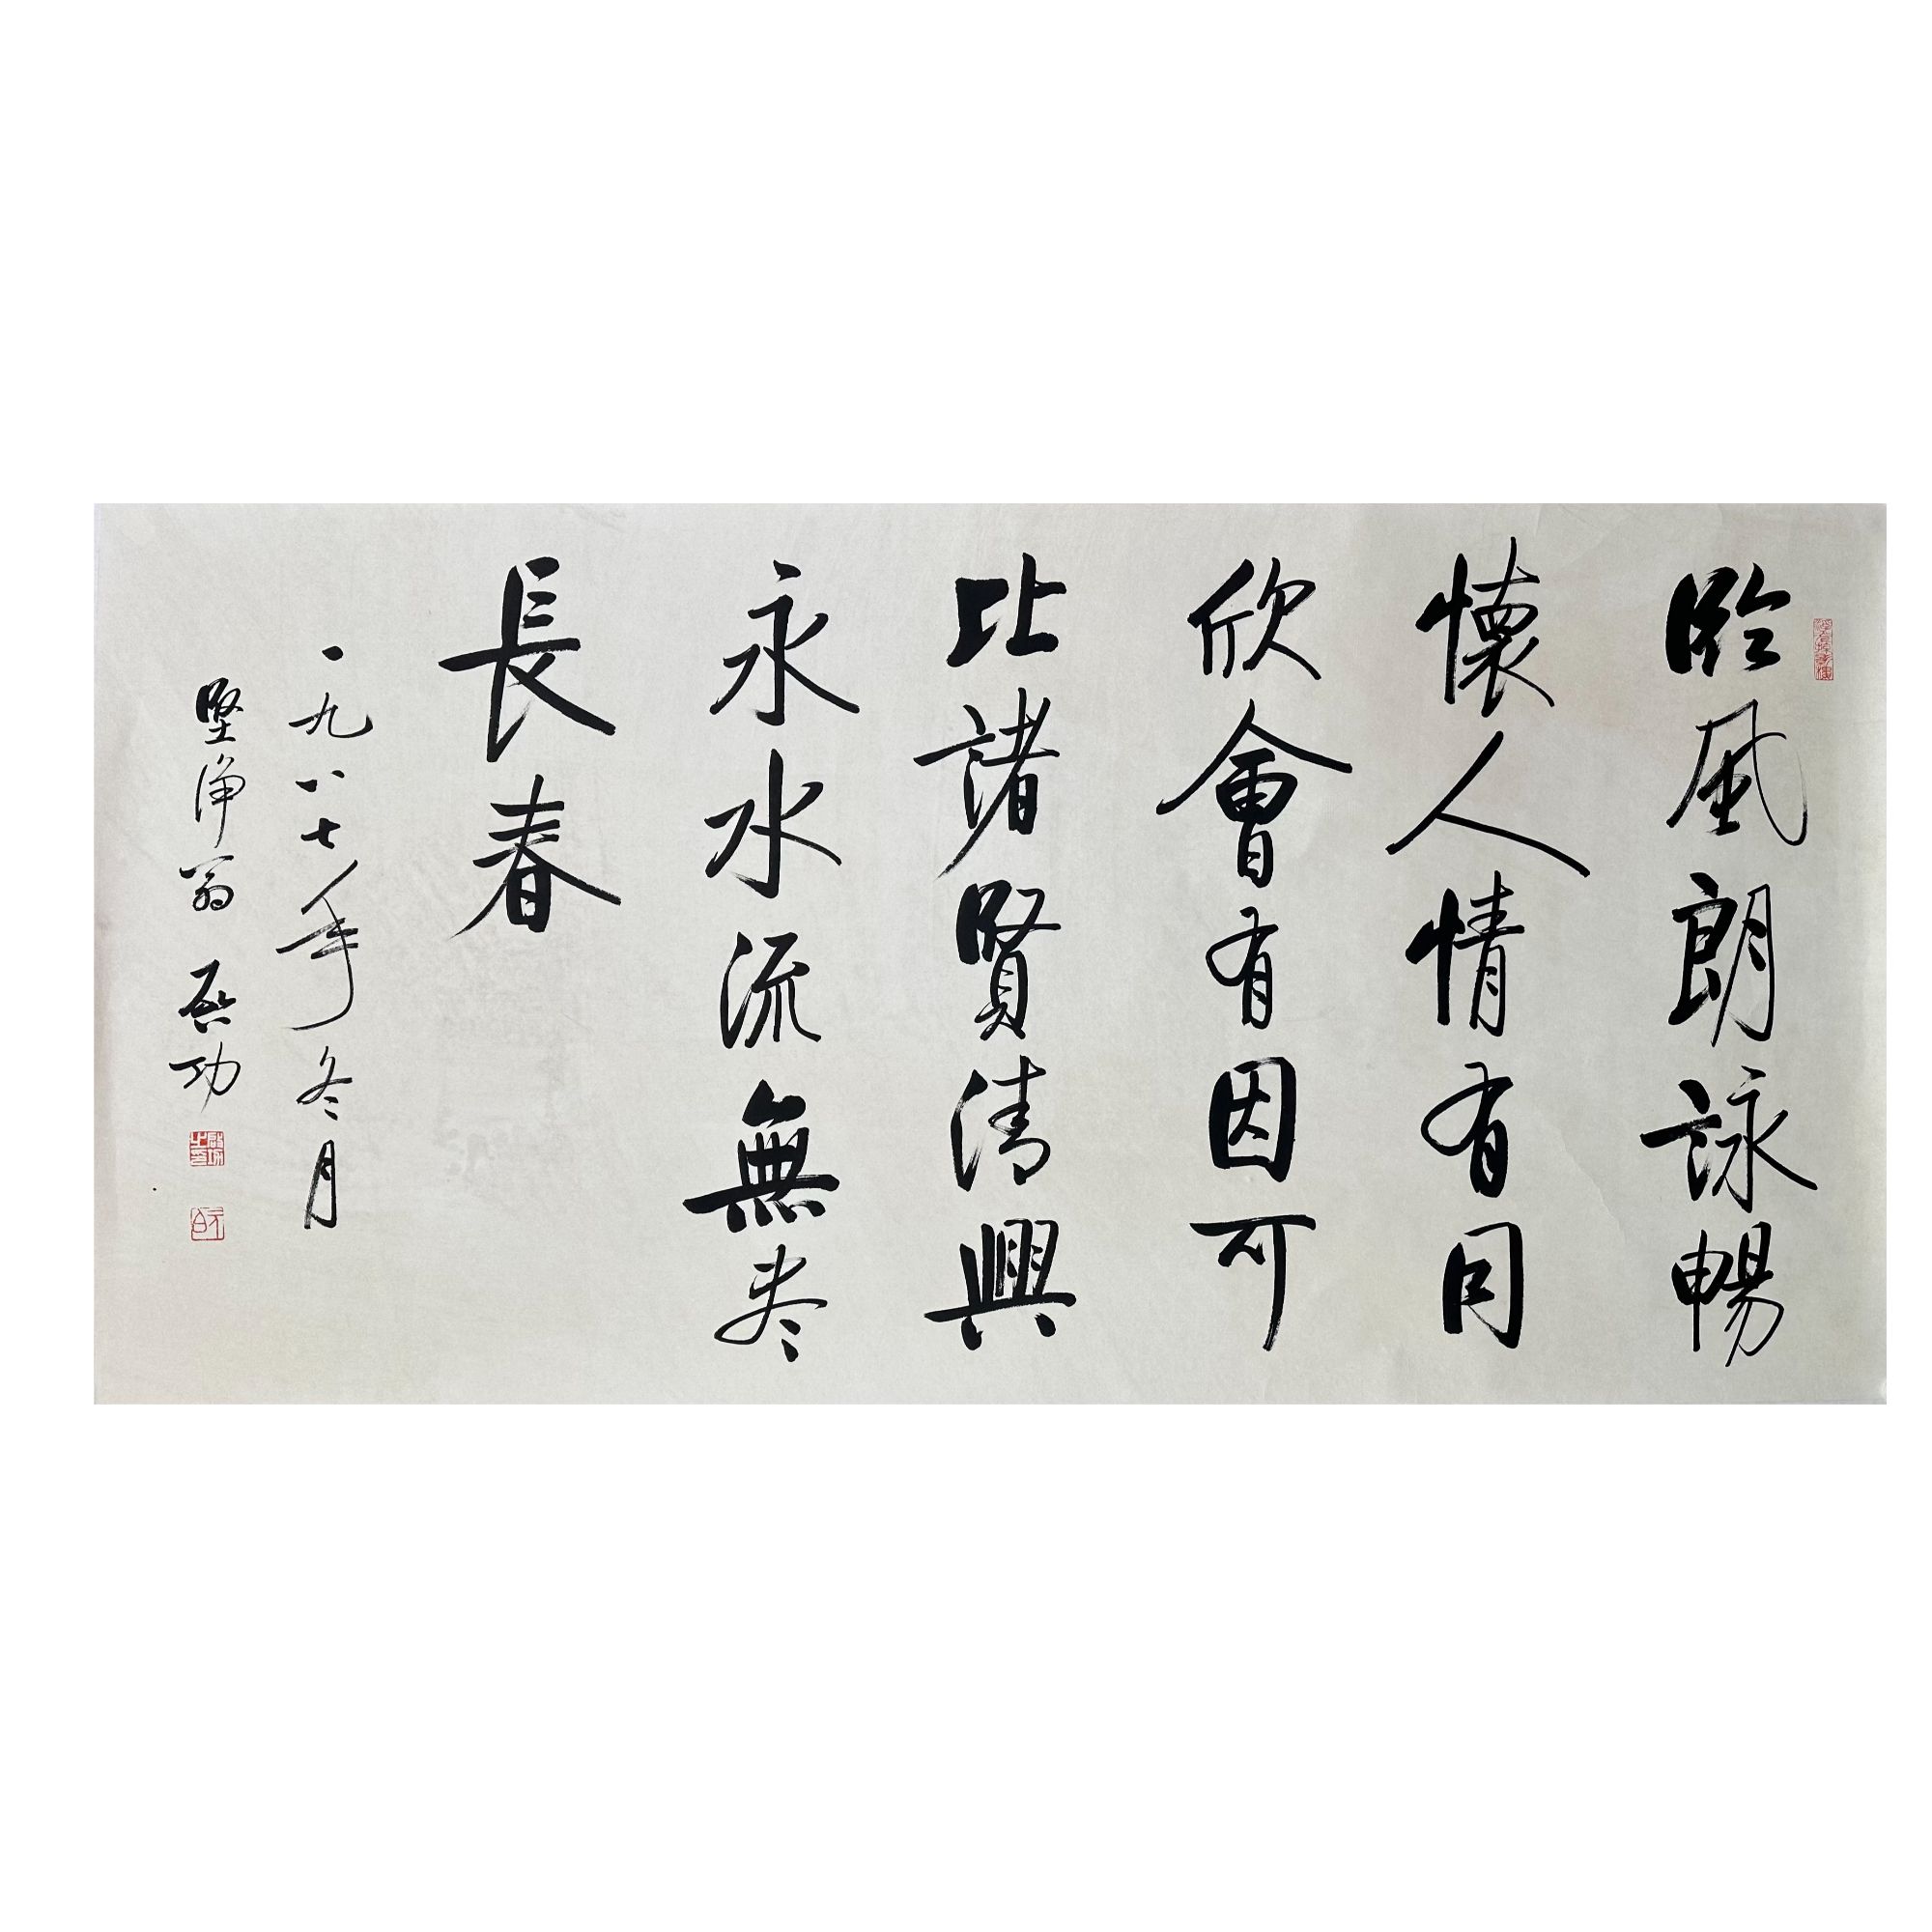 臨風朗詠暢
懷人情有同
欣會有因可
比諸賢清興
永水流無盡
長春
一九八七年冬月
堅淨翁 啟功
啟功之印
元白